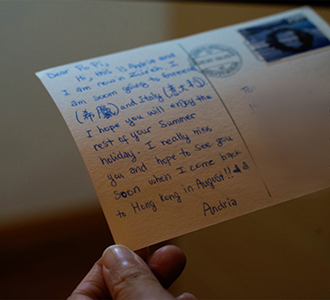 Dear Po Pi,
Hi, this is Andria and
I am now in Zurich. I
am soon going to Greece
(希臘) and Italy (意大利)
I hope you will enjoy the
rest of your Summer
holiday. I really miss
you and hope to see you
soon when I come back
to Hong Kong in August!!
Andria
To: